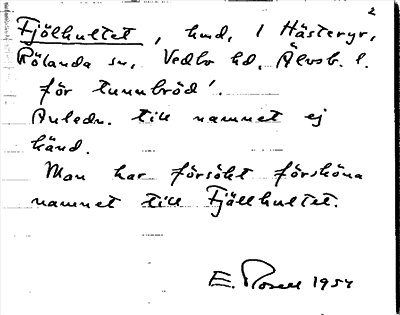 2
Fjölhultet, hmd, 1 Hästeryr,
Rölanda sn, Vedbo hd, Älvsb. l.
för tunnbröd'.
Anledn. till namnet ej
känd.
Man har försökt försköna
namnet till Fjällhultet.
E. Rosell 1954